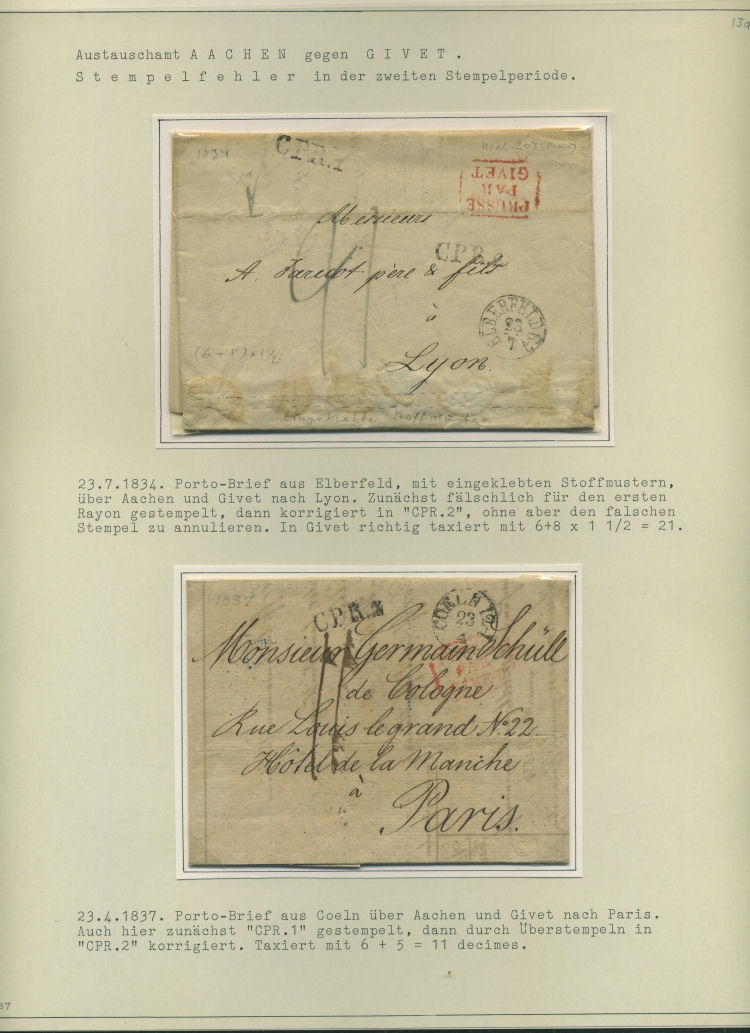 13a
Austauschamt A A C H E N gegen G I V E T .
S t e m p e l f e h l e r in der zweiten Stempelperiode.
1834
CPR.1
PRUSSE
PAR
GIVET
Messieurs
CPR.
A. Faricot père & fils
ELBERFELD
23
7
à
(6+8)x1½
Lyon.
eingeklebte Stoffmuster
23.7.1834. Porto-Brief aus Elberfeld, mit eingeklebten Stoffmustern,
über Aachen und Givet nach Lyon. Zunächst fälschlich für den ersten
Rayon gestempelt, dann korrigiert in "CPR.2", ohne aber den falschen
Stempel zu annulieren. In Givet richtig taxiert mit 6+8 x 1 1/2 = 21.
1837
CPR.2
COELN
23
Monsieur Germain Schüll
de Cologne
Rue Louis legrand No. 22.
Hôtel de la Manche
à
Paris.
23.4.1837. Porto-Brief aus Coeln über Aachen und Givet nach Paris.
Auch hier zunächst "CPR.1" gestempelt, dann durch Überstempeln in
"CPR.2" korrigiert. Taxiert mit 6 + 5 = 11 decimes.